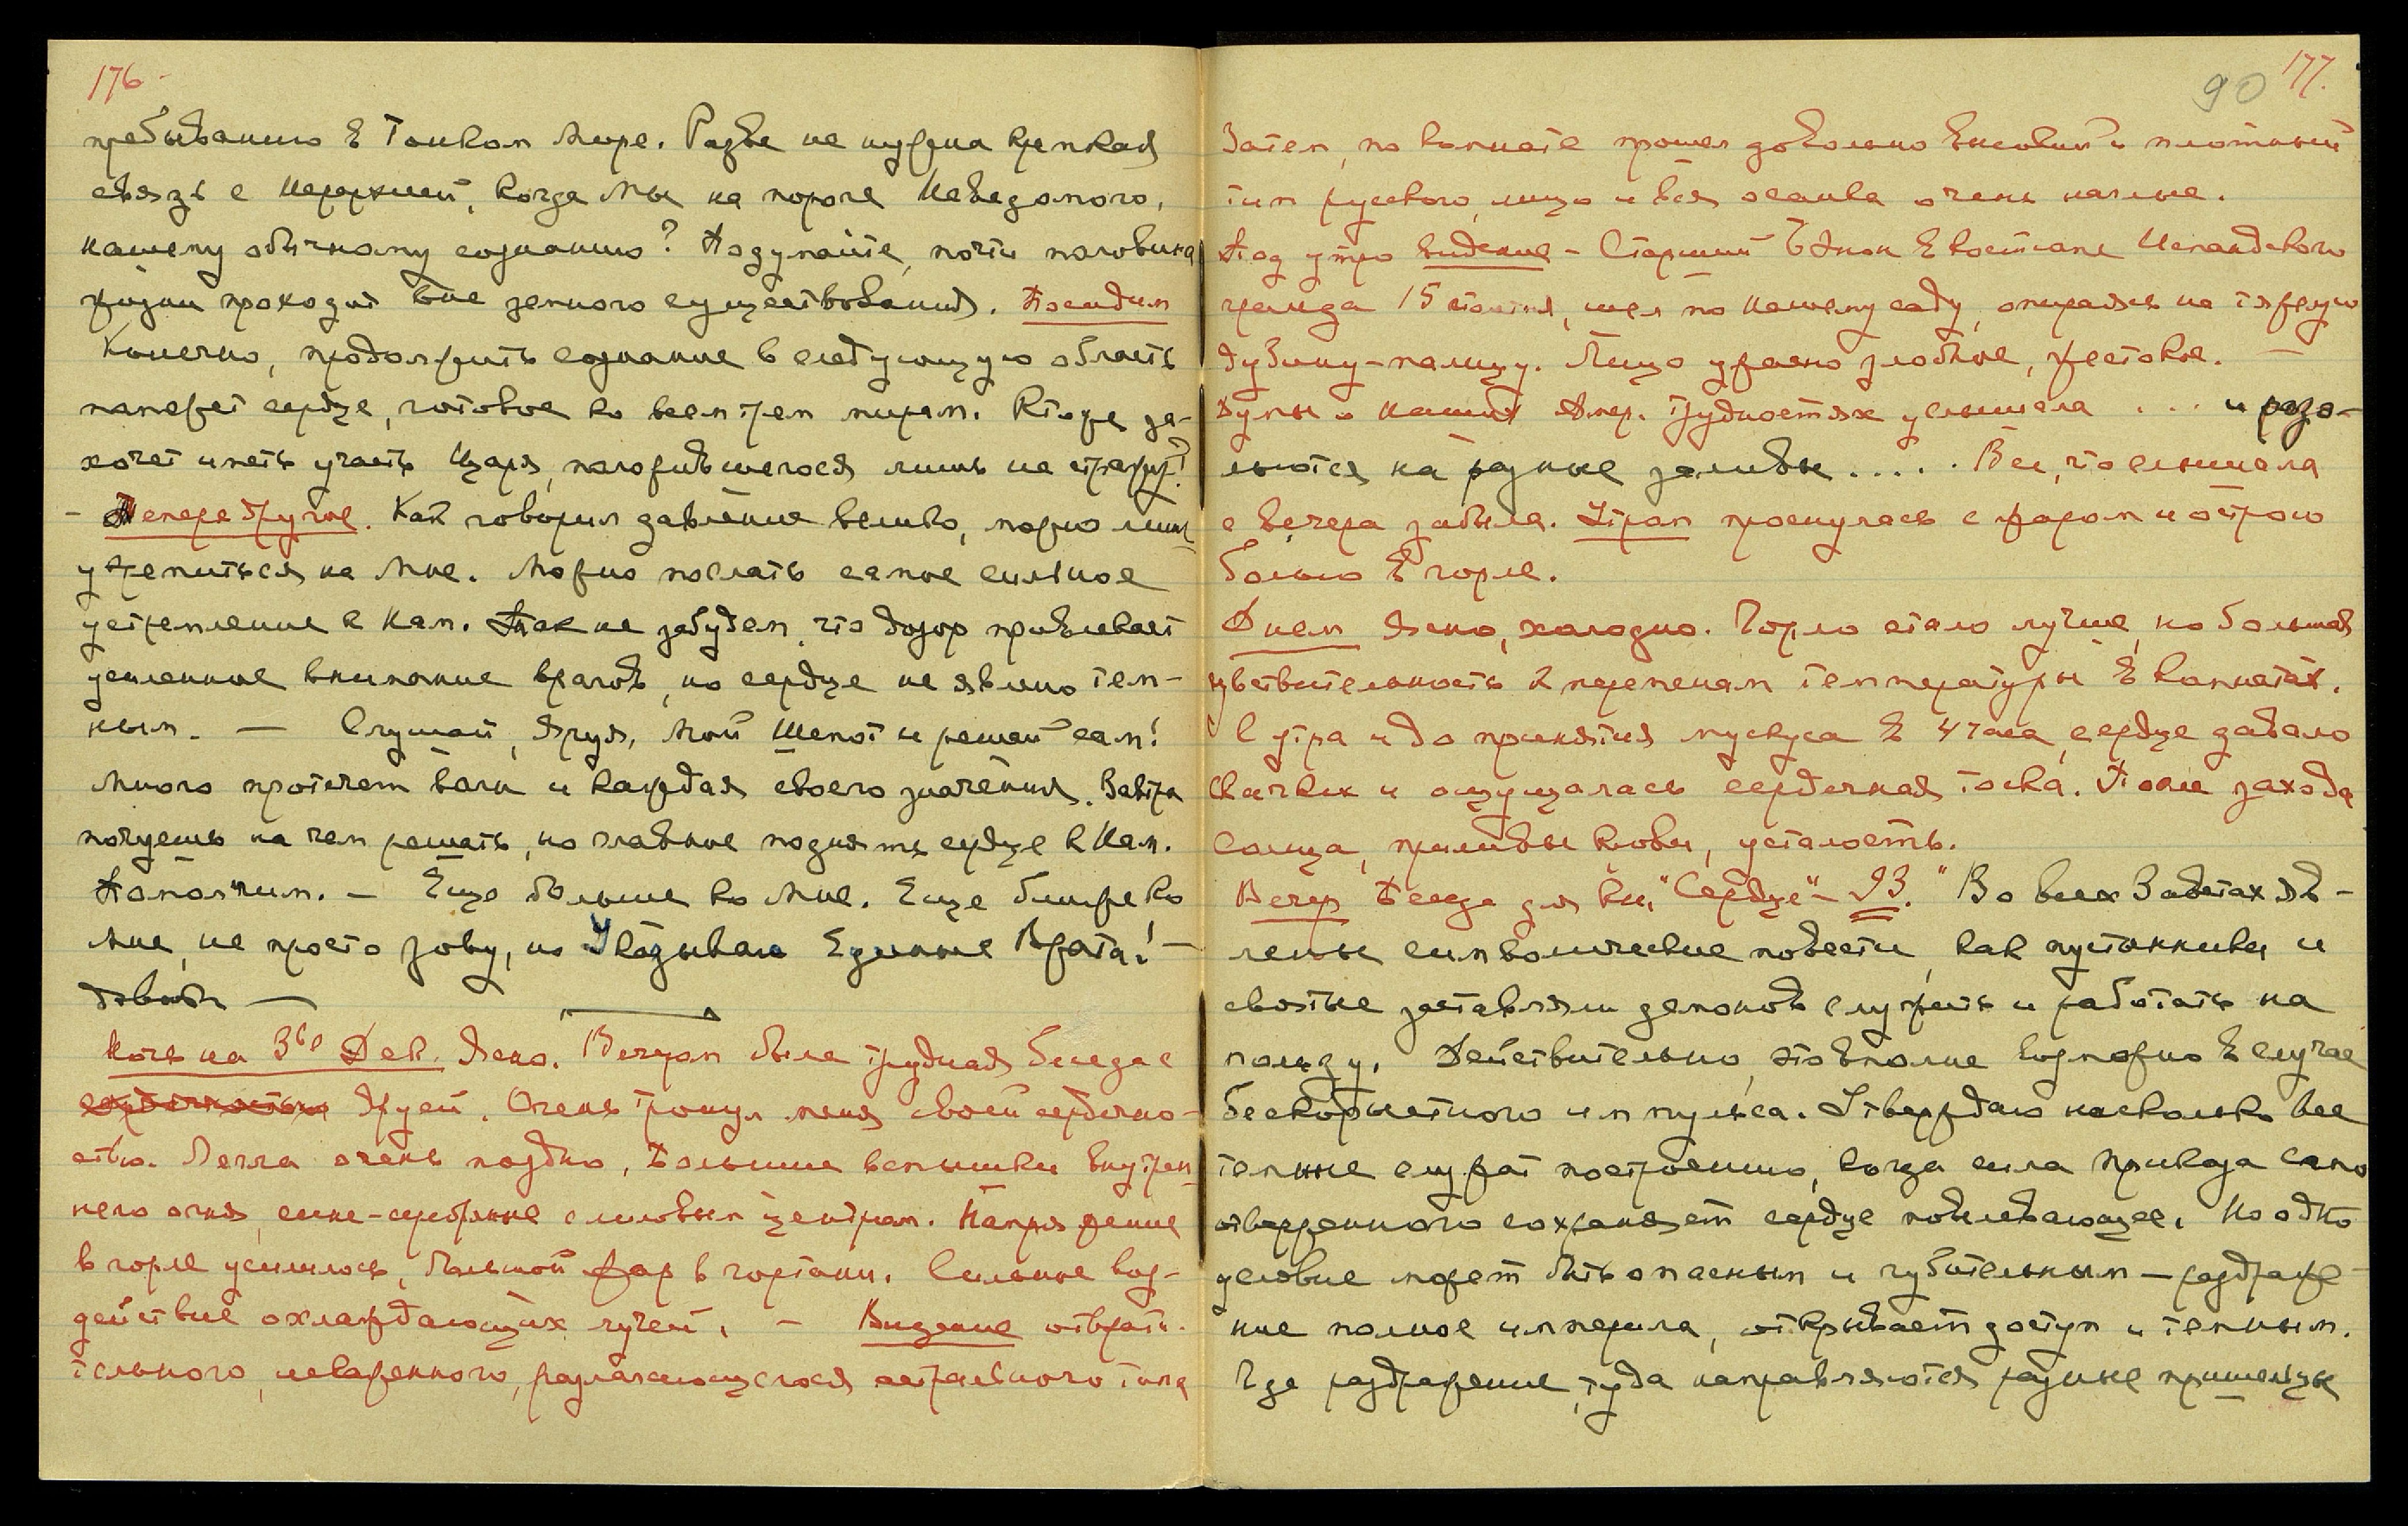 176
пребыванию в Тонком Мире. Разве не нужна крепкая
связь с Иерархией, когда мы на пороге Неведомого,
нашему обычному сознанию? Подумайте, почти половина
жизни проходит вне земного существования. Посидим
Конечно, продолжить сознание в следующую область
поможет сердце, готовое ко всем трем мирам. Кто же за-
хочет иметь участь Царя, положившегося лишь на стражу?
– Теперь другое. Как говорил давление велико, можно лишь
укрепиться на Мне. Можно послать самое сильное
устремление к Нам. Так не забудем, что дозор привлекает
усиленное внимание врагов, но сердце не явлено тем-
ным. — Слушай, Яруя, Мой Шепот и решай сам!
Много протечет волн и каждая своего значения. Завтра
почуешь на чем решать, но главное поднять сердце к Нам.
Помолчим. – Еще больше ко Мне. Еще ближе ко
Мне, не просто зову, но Указываю Единые Врата! –
Довольно —
Ночь на 3ье Дек. Ясно. Вечером была трудная беседа с
Яруей. Очень тронул меня своей сердечно-
стью. Легла очень поздно, Большие вспышки внутрен
него огня, сине-серебряные с лиловым центром. Напряжение
в горле усилилось, большой жар в гортани. Сильное воз-
действие охлаждающих лучей. – Видение отврати-
тельного, изваренного, разлагающегося астрального типа
90 177.
Затем, по комнате прошел довольно высокий и плотный
тип русского, лицо и вся осанка очень наглые.
Под утро видение – Старший Бэнон в костюме Испанского
гранда 15 столетия, шел по нашему саду, опираясь на тяжелую
дубину-палицу. Лицо ужасно злобное, жестокое. —
Думы о наших Амер. трудностях услышала . . . и разо-
льются на разные заливы..... Все, что слышала
с вечера забыла. Утром проснулась с жаром и острою
болью в горле.
Днем Ясно, холодно. Горло стало лучше, но большая
чувствительность к переменам температуры в комнатах.
С утра и до принятия мускуса в 4 часа, сердце давало
скачки и ощущалась сердечная тоска. После захода
солнца, приливы крови, усталость.
Вечер Беседа для кн. "Сердце" – 93. "Во всех Заветах яв-
лены символические повести, как пустынники и
святые заставляли демонов служить и работать на
пользу. Действительно, это вполне возможно в случае
бескорыстного импульса. Утверждаю насколько все
темные служат построению, когда сила приказа само
отверженного сохраняет сердце повелевающее. Но одно
условие может быть опасным и губительным – раздраже-
ние полное империла, открывает доступ и темным.
Где раздражение, туда направляются разные пришельцы